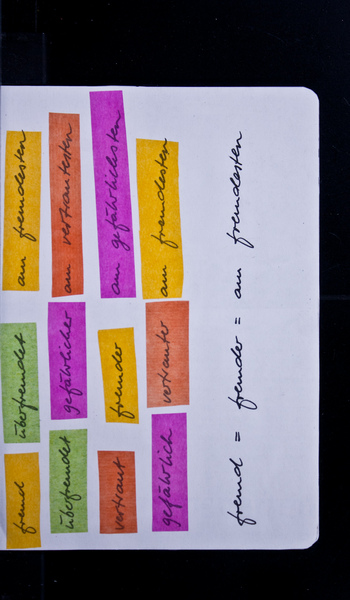 fremd überfremdet am fremdesten
überfremdet gefährlicher am vertrautesten
vertraut fremder am gefährlichsten
gefährlich vertrauter am fremdesten
fremd = fremder = am fremdesten